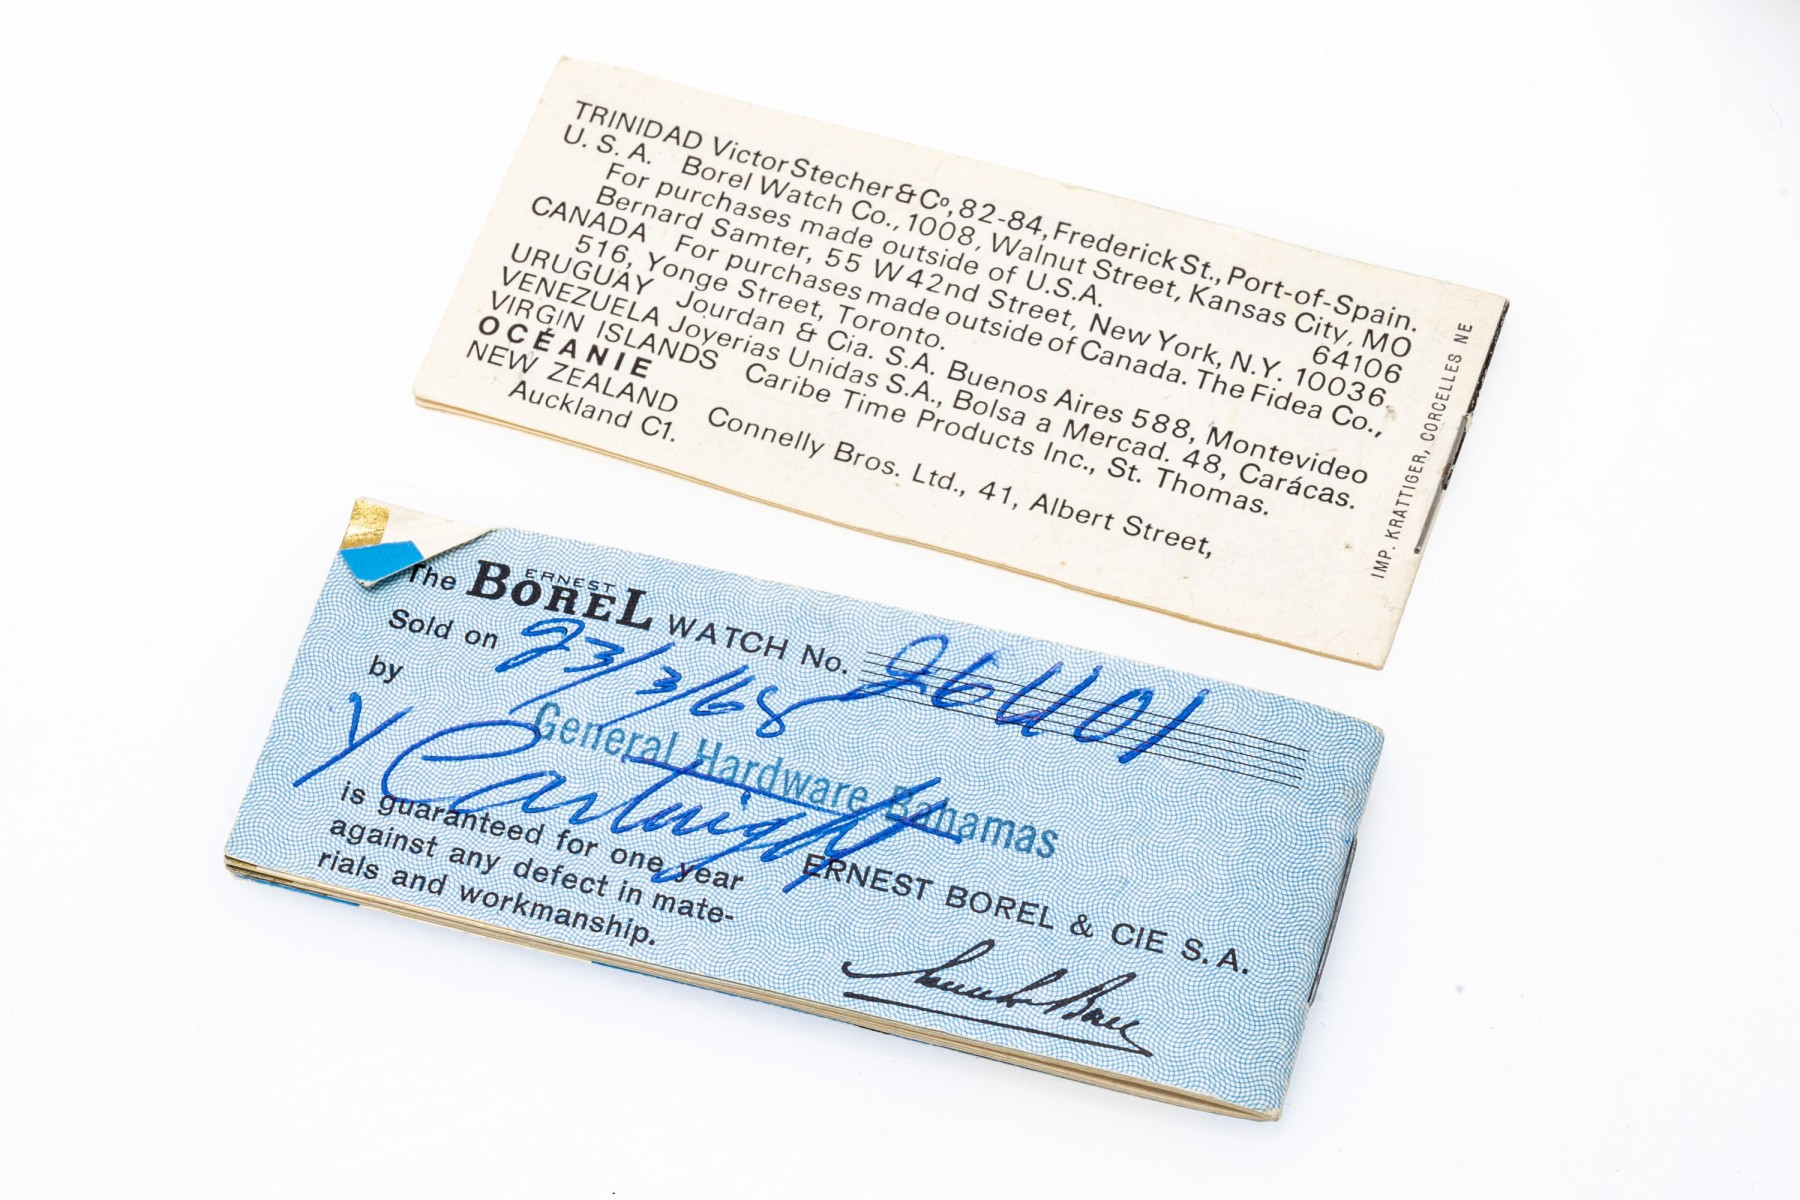 TRINIDAD Victor Stecher & Co, 82-84, Frederick St., Port-of-Spain.
U. S. A. Borel Watch Co., 1008, Walnut Street, Kansas City, MO
64106
For purchases made outside of U.S.A.
Bernard Samter, 55 W 42nd Street, New York, N.Y. 10036.
CANADA For purchases made outside of Canada. The Fidea Co.,
516, Yonge Street, Toronto.
URUGUAY Jourdan & Cia. S.A. Buenos Aires 588, Montevideo
VENEZUELA Joyerias Unidas S.A., Bolsa a Mercad. 48, Carácas.
VIRGIN ISLANDS Caribe Time Products Inc., St. Thomas.
OCÉANIE
NEW ZEALAND Connelly Bros. Ltd., 41, Albert Street,
Auckland C1.
IMP. KRATTIGER, CORCELLES NE
The ERNEST BOREL WATCH No.
Sold on 23/3/68
by
General Hardware Bahamas
Y Cartwright
is guaranteed for one year
against any defect in mate-
rials and workmanship.
ERNEST BOREL & CIE S. A.